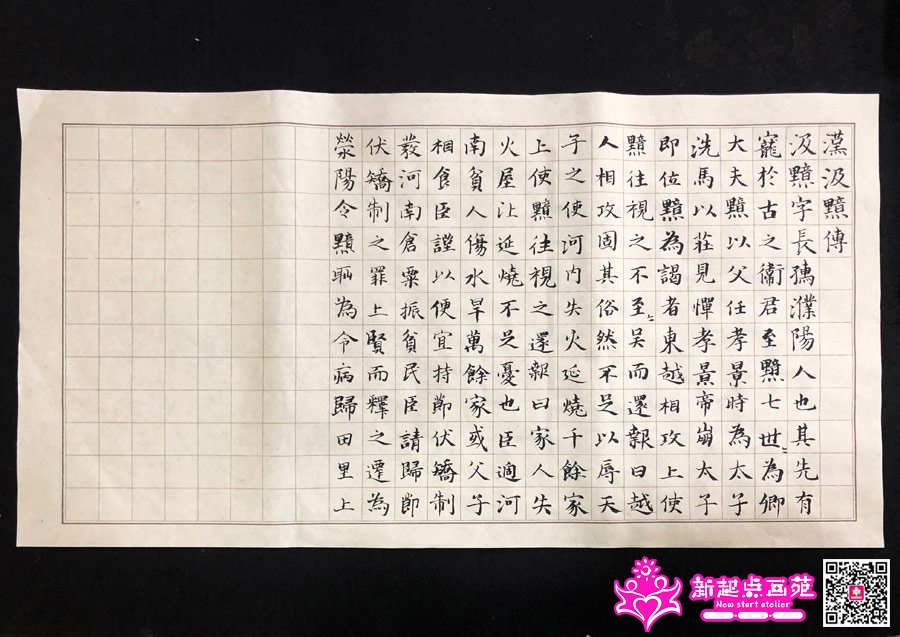 漢汲黯傳
汲黯字長孺濮陽人也其先有
寵於古之衛君至黯七世〻為卿
大夫黯以父任孝景時為太子
洗馬以莊見憚孝景帝崩太子
即位黯為謁者東越相攻上使
黯往視之不至〻吳而還報曰越
人相攻固其俗然不足以辱天
子之使河內失火延燒千餘家
上使黯往視之還報曰家人失
火屋比延燒不足憂也臣過河
南貧人傷水旱萬餘家或父子
相食臣謹以便宜持節伏矯制
發河南倉粟振貧民臣請歸節
伏矯制之罪上賢而釋之遷為
滎陽令黯恥為令病歸田里上
新起点画苑
New start atelier